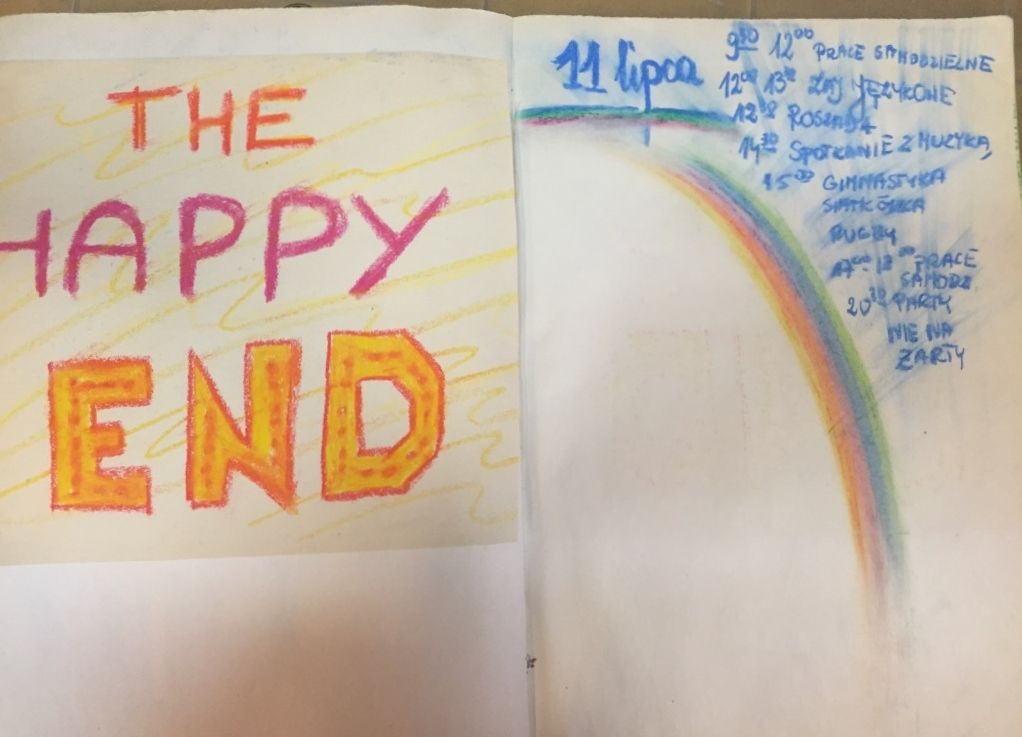 THE
HAPPY
END
11 lipca
9³⁰ 12⁰⁰ PRACE SAMODZIELNE
12⁰⁰ 13³⁰ ZAJ JĘZYKOWE
ROSZADA
14³⁰ SPOTKANIE Z MUZYKĄ,
15⁰⁰ GIMNASTYKA
SIATKÓWKA
RUGBY
PRACE
SAMODZ.
20³⁰ PARTY
NIE NA
ŻARTY